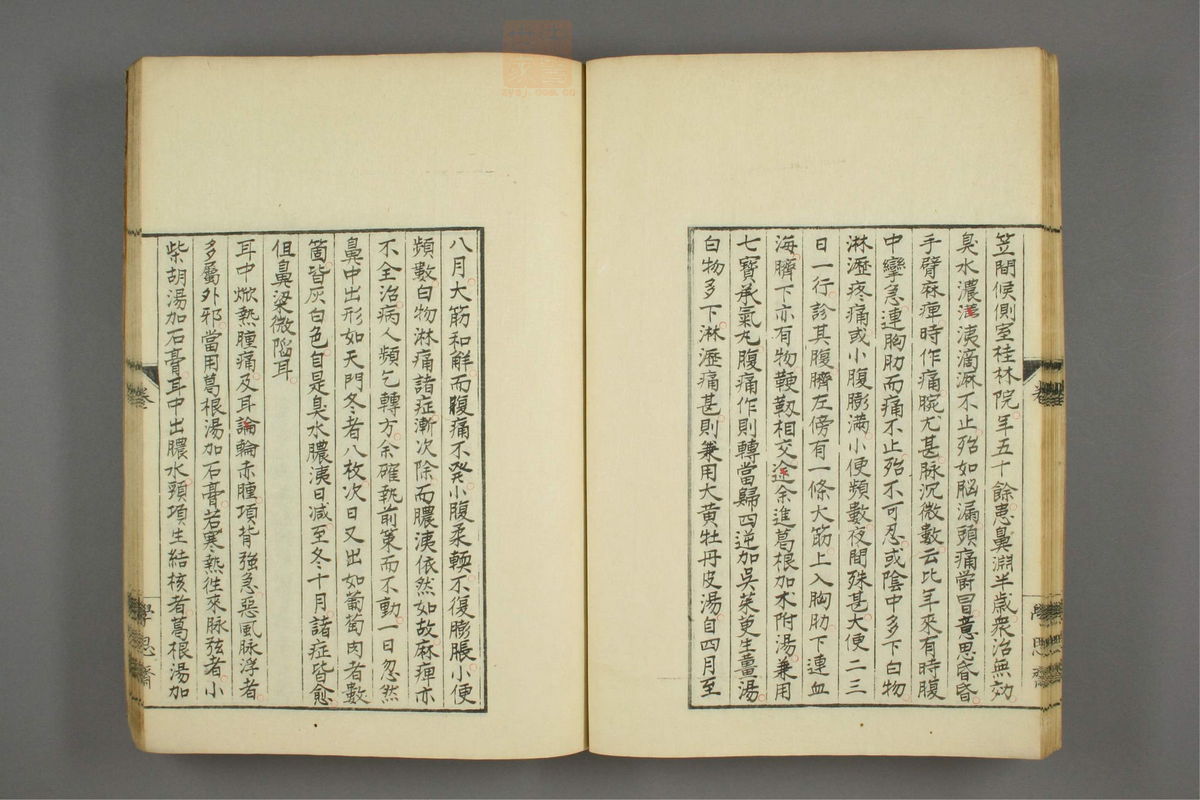 笠間候側室桂林院年五十餘患鼻淵半歳衆治無効
臭水濃洟滴瀝不止殆如脳漏頭痛欝冒意思昏昏
手臂麻痺時作痛腕尤甚脉沉微數云比年來有時腹
中攣急連胸肋而痛不止殆不可忍或陰中多下白物
淋瀝疼痛或小腹膨満小便頻數夜間殊甚大便二三
日一行診其腹臍左傍有一條大筋上入胸肋下連血
海臍下亦有物鞕靱相交途余進葛根加朮附湯兼用
七寶承氣丸腹痛作則轉當歸四逆加吳茱萸生薑湯
白物多下淋瀝痛甚則兼用大黄牡丹皮湯自四月至
八月大筋和觧而腹痛不発小腹柔輭不復膨脹小便
頻數白物淋痛諸症漸次除而膿洟依然如故麻痺亦
不全治病人頻乞轉方余確執前策而不動一日忽然
鼻中出形如天門冬者八枚次日又出如葡萄肉者數
箇皆灰白色自是臭水膿洟日减至冬十月諸症皆愈
但鼻梁微陷耳
耳中焮熱腫痛及耳論輪赤腫項背強急惡風脉浮者
多屬外邪當用葛根湯加石膏若寒熱徃來脉弦者小
柴胡湯加石膏耳中出膿水頸項生結核者葛根湯加
卷
學思齋
卷
學思齋